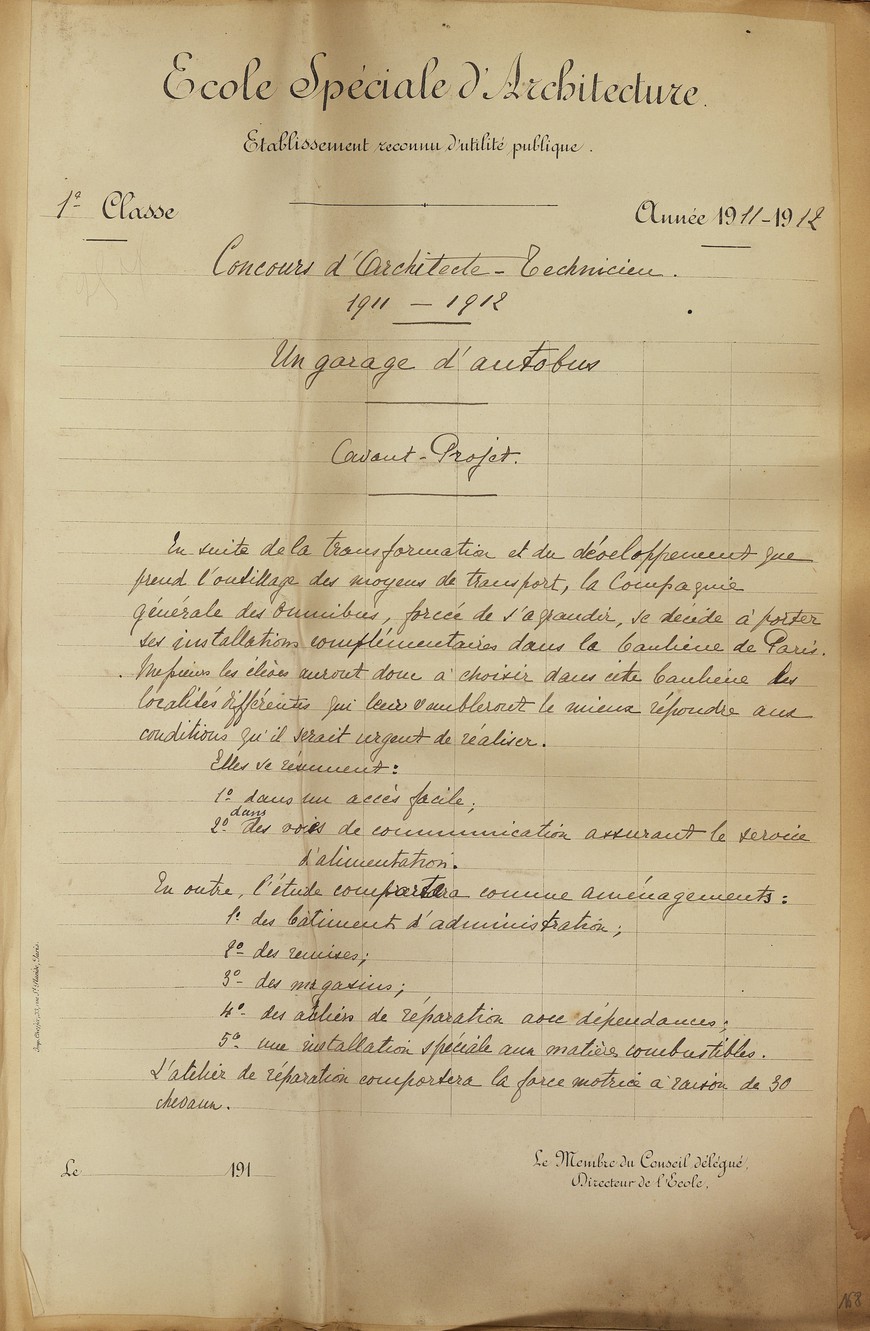 Ecole Spéciale d'Architecture.
Etablissement reconnu d'utilité publique.
1e Classe
Année 1911-1912
Concours d'Architecte-Technicien.
1911 — 1912
Un garage d'autobus
Avant-Projet.
En suite de la transformation et du développement que
prend l'outillage des moyens de transport, la Compagnie
générale des Omnibus, forcée de s'agrandir, se décide à porter
ses installations complémentaires dans la banlieue de Paris.
Messieurs les élèves auront donc à choisir dans cete banlieue les
localités différentes qui leur sembleront le mieux répondre aux
conditions qu'il serait urgent de réaliser.
Elles se résument:
1º dans un accès facile;
2º dans des voies de communication assurant le service
d'alimentation.
En outre, l'étude comportera comme aménagements:
1º des bâtiments d'administration;
2º des remises;
3º des magasins;
4º des ateliers de réparation avec dépendances;
5º une installation spéciale aux matières combustibles.
L'atelier de réparation comportera la force motrice à raison de 30
chevaux.
Le 191
Le Membre du Conseil délégué,
Directeur de l'Ecole.
168